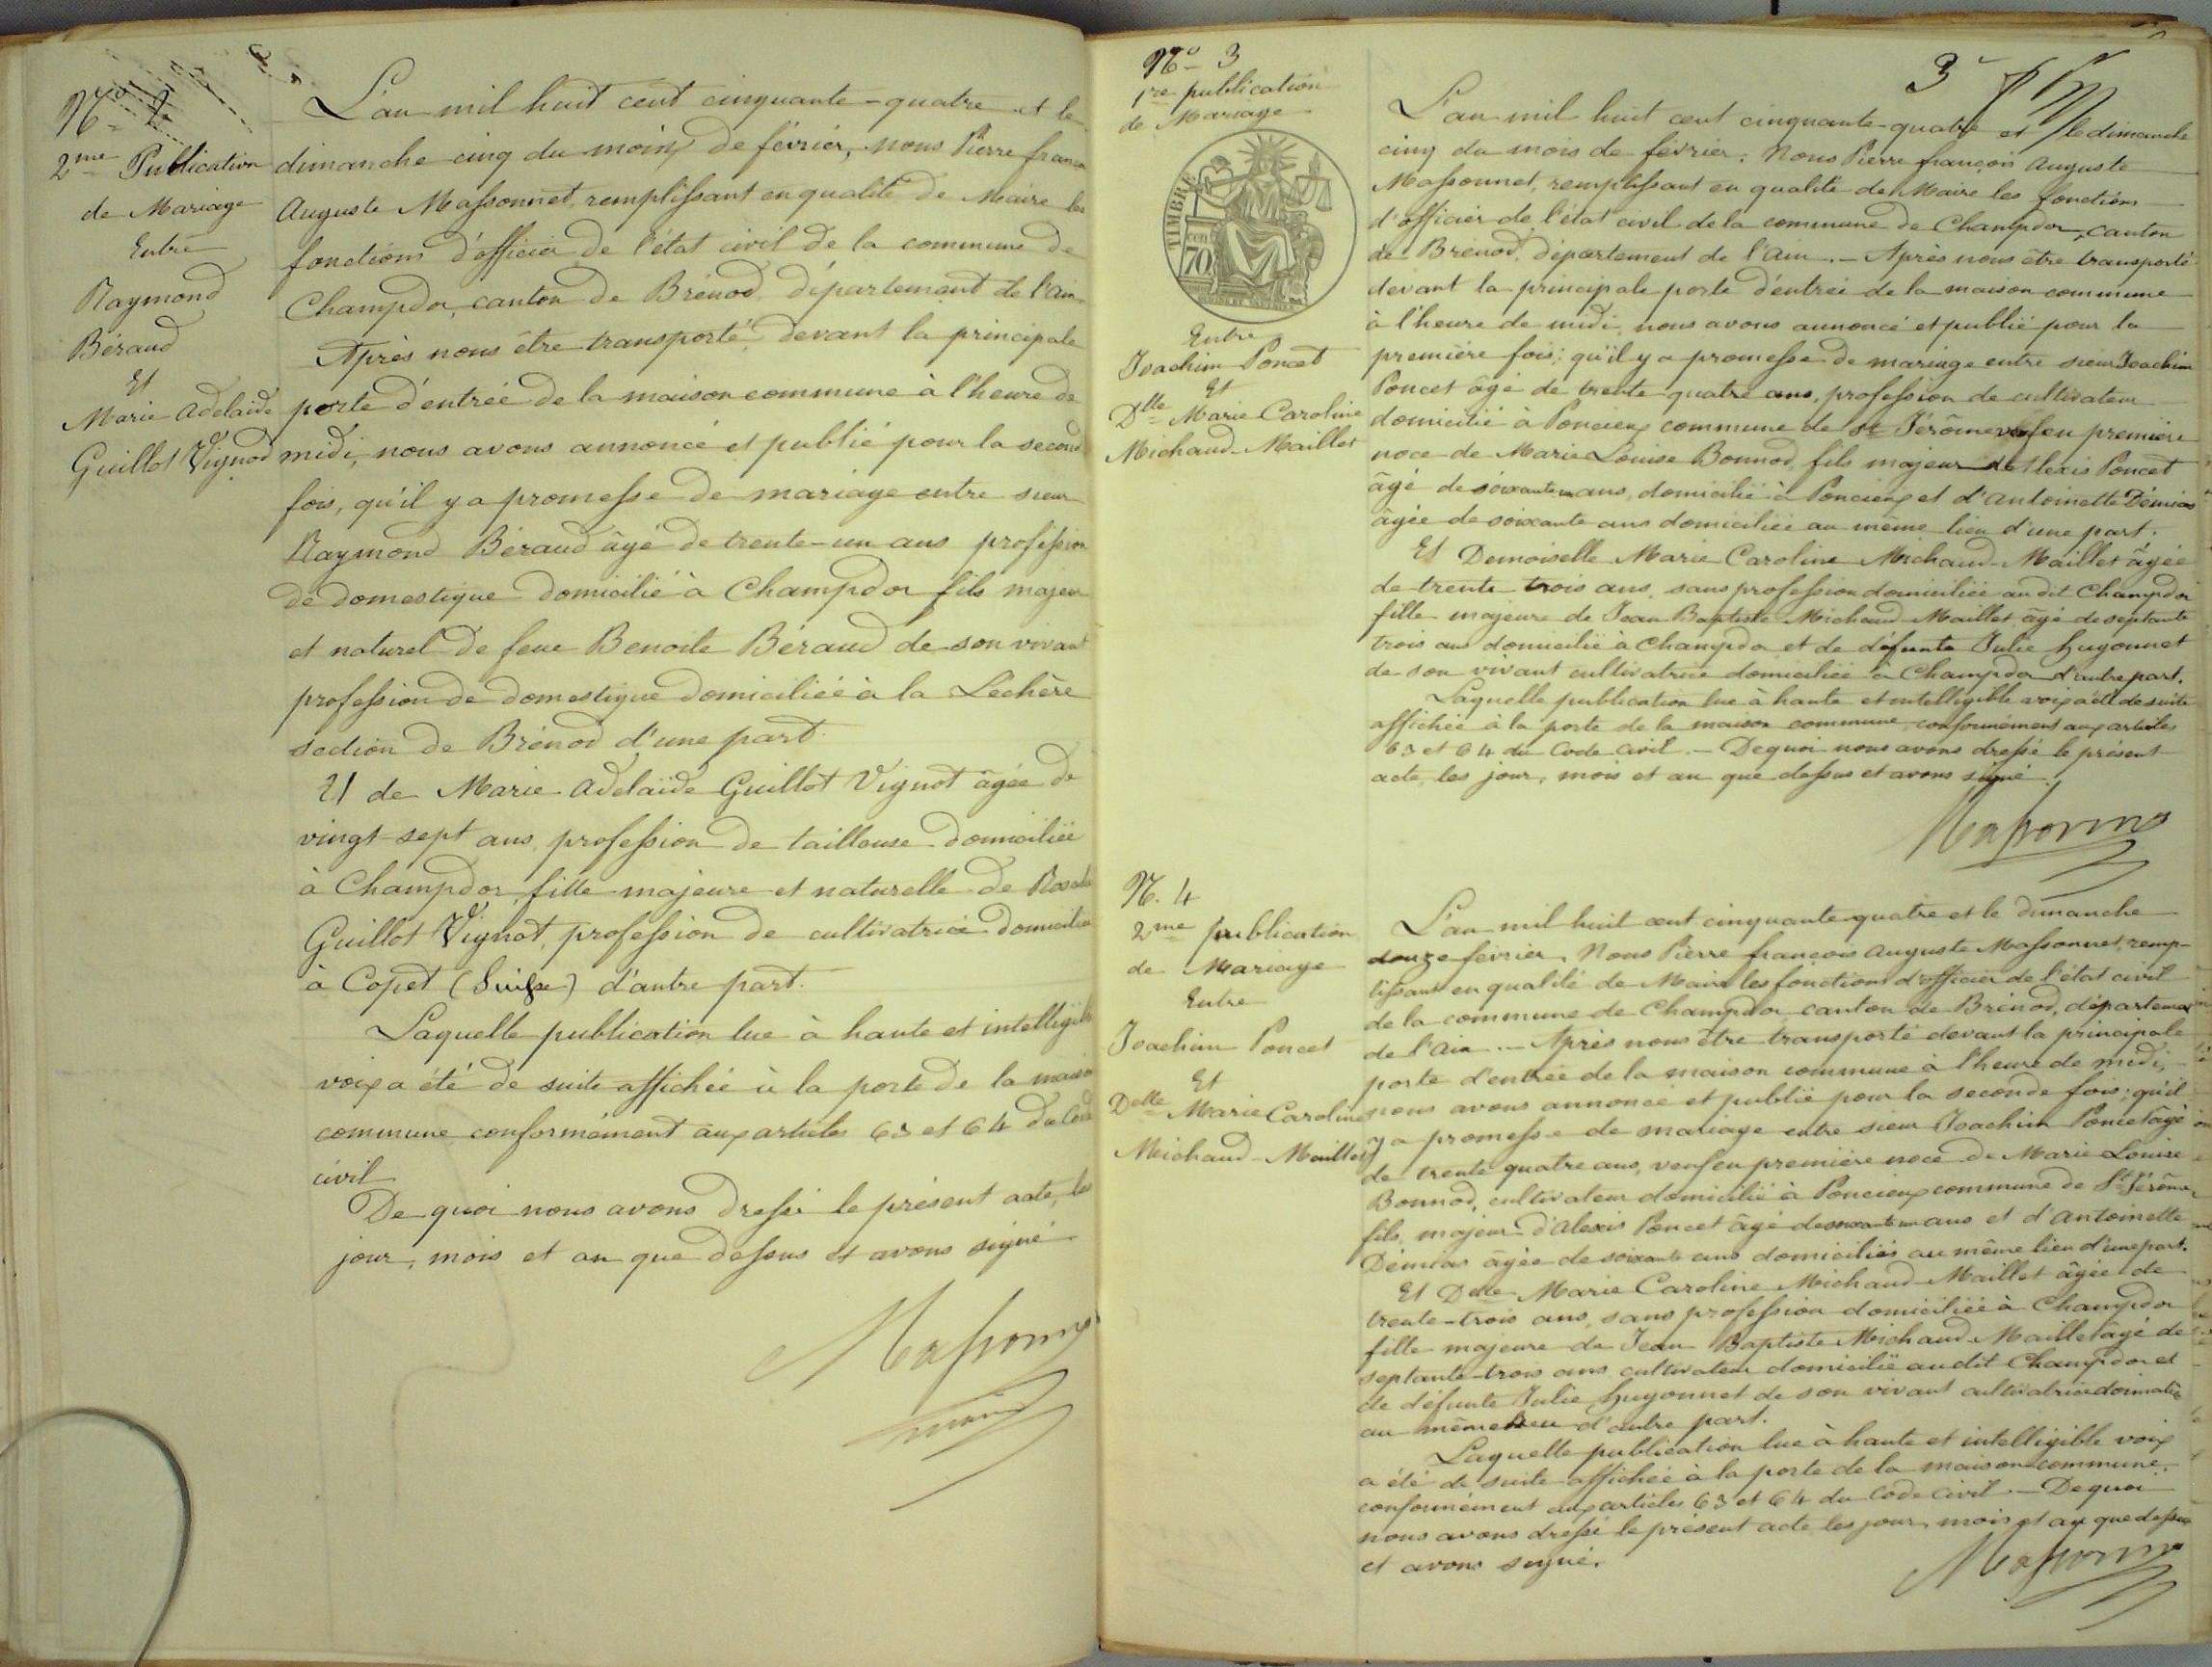 No 2
2me Publication
de Mariage
Entre
Raymond
Béraud
Et
Marie Adelaide
Guillot Vignod
L'an mil huit cent cinquante-quatre et le
dimanche cinq du mois de février, nous Pierre françois
Auguste Massonnet, remplissant en qualité de Maire les
fonctions d'officier de l'état civil de la commune de
Champdor, canton de Brénod, département de l'Ain
Après nous être transporté devant la principale
porte d'entrée de la maison commune à l'heure de
midi, nous avons annoncé et publié pour la seconde
fois, qu'il y a promesse de mariage entre sieur
Raymond Béraud âgé de trente-un ans profession
de domestique domicilié à Champdor fils majeur
et naturel de feue Benoite Béraud de son vivant
profession de domestique domiciliée à la Léchère
section de Brénod d'une part.
Et de Marie Adelaïde Guillot Vignot âgée de
vingt-sept ans, profession de tailleuse domiciliée
à Champdor, fille majeure et naturelle de
Guillot Vignot, profession de cultivatrice domiciliée
à Copet (Suisse) d'autre part.
Laquelle publication lue à haute et intelligible
voix a été de suite affichée à la porte de la maison
commune conformément aux articles 63 et 64 du Code
civil
De quoi nous avons dressé le présent acte, les
jour, mois et an que dessus et avons signé
Massonnet
No 3
1re publication
de Mariage
TIMBRE
70
Entre
Joachim Poncet
Et
Dlle Marie Caroline
Michaud-Maillet
3
L'an mil huit cent cinquante-quatre et le dimanche
cinq du mois de février. Nous Pierre françois Auguste
Massonnet, remplissant en qualité de Maire les fonctions
d'officier de l'état civil de la commune de Champdor, canton
de Brénod, département de l'Ain. — Après nous être transporté
devant la principale porte d'entrée de la maison commune
à l'heure de midi, nous avons annoncé et publié pour la
première fois; qu'il y a promesse de mariage entre sieur Joachim
Poncet âgé de trente-quatre ans, profession de cultivateur
domicilié à Poncieux commune de St Jérôme veuf en première
noce de Marie Louise Bonnod, fils majeur de Alexis Poncet
âgé de soixante un ans, domicilié à Poncieux et d'Antoinette Démias
âgée de soixante ans domiciliée au même lieu d'une part.
Et Demoiselle Marie Caroline Michaud-Maillet âgée
de trente trois ans, sans profession domiciliée au dit Champdor
fille majeure de Jean Baptiste Michaud-Maillet âgé de septante
trois ans domicilié à Champdor et de défunte Julie Hugonnet
de son vivant cultivatrice domiciliée à Champdor d'autre part.
Laquelle publication lue à haute et intelligible voix a été de suite
affichée à la porte de la maison commune conformément aux articles
63 et 64 du Code civil. — De quoi nous avons dressé le présent
acte les jour, mois et an que dessus et avons signé.
Massonnet
N. 4
2me publication
de Mariage
Entre
Joachim Poncet
Et
Delle Marie Caroline
Michaud-Maillet
L'an mil huit cent cinquante-quatre et le dimanche
douze février. Nous Pierre françois Auguste Massonnet, remp-
lissant en qualité de Maire les fonctions d'officier de l'état civil
de la commune de Champdor canton de Brénod, département
de l'Ain. — Après nous être transporté devant la principale
porte d'entrée de la maison commune à l'heure de midi,
nous avons annoncé et publié pour la seconde fois; qu'il
y a promesse de mariage entre sieur Joachim Poncet âgé
de trente quatre ans, veuf en première noce de Marie Louise
Bonnod, cultivateur domicilié à Poncieux commune de St Jérôme,
fils majeur d'Alexis Poncet âgé de soixante un ans et d'Antoinette
Démias âgée de soixante ans domiciliés au même lieu d'une part.
Et Delle Marie Caroline Michaud-Maillet âgée de
trente-trois ans, sans profession domiciliée à Champdor
fille majeure de Jean Baptiste Michaud-Maillet âgé de
septante-trois ans cultivateur domicilié au dit Champdor et
de défunte Julie Hugonnet de son vivant cultivatrice domiciliée
au même lieu d'autre part.
Laquelle publication lue à haute et intelligible voix
a été de suite affichée à la porte de la maison commune,
conformément aux articles 63 et 64 du Code civil. — De quoi
nous avons dressé le présent acte les jour, mois et an que dessus
et avons signé.
Massonnet